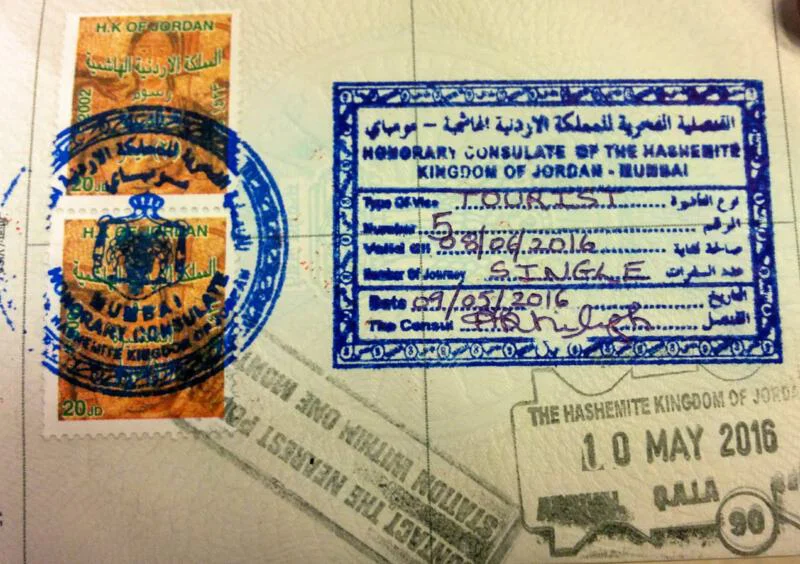 H.K OF JORDAN
المملكة الاردنية الهاشمية
رسوم
2002
20 JD
H.K OF JORDAN
المملكة الاردنية الهاشمية
20 JD
MUMBAI
HONORARY CONSULATE
HASHEMITE KINGDOM OF JORDAN
القنصلية الفخرية للمملكة الاردنية الهاشمية - مومباي
HONORARY CONSULATE OF THE HASHEMITE
KINGDOM OF JORDAN - MUMBAI
Type Of Visa TOURIST نوع التأشيرة
Number 5 الرقم
Valid till 08/06/2016 صالحة لغاية
Number Of Journey SINGLE عدد السفرات
Date 09/05/2016 التاريخ
The Consul القنصل
CONTACT THE NEAREST POLICE
STATION WITHIN ONE MONTH
THE HASHEMITE KINGDOM OF JORDA
10 MAY 2016
ARRIVAL Q.A.I.A
90